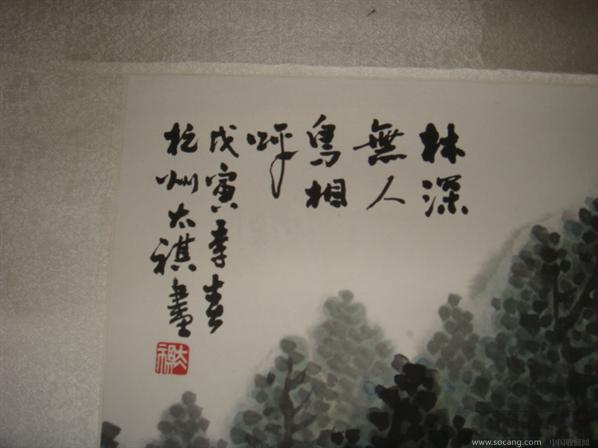 林深
無人
鳥相
呼
戊寅季春
杭州太祺畫
www.socang.com 中国收藏网